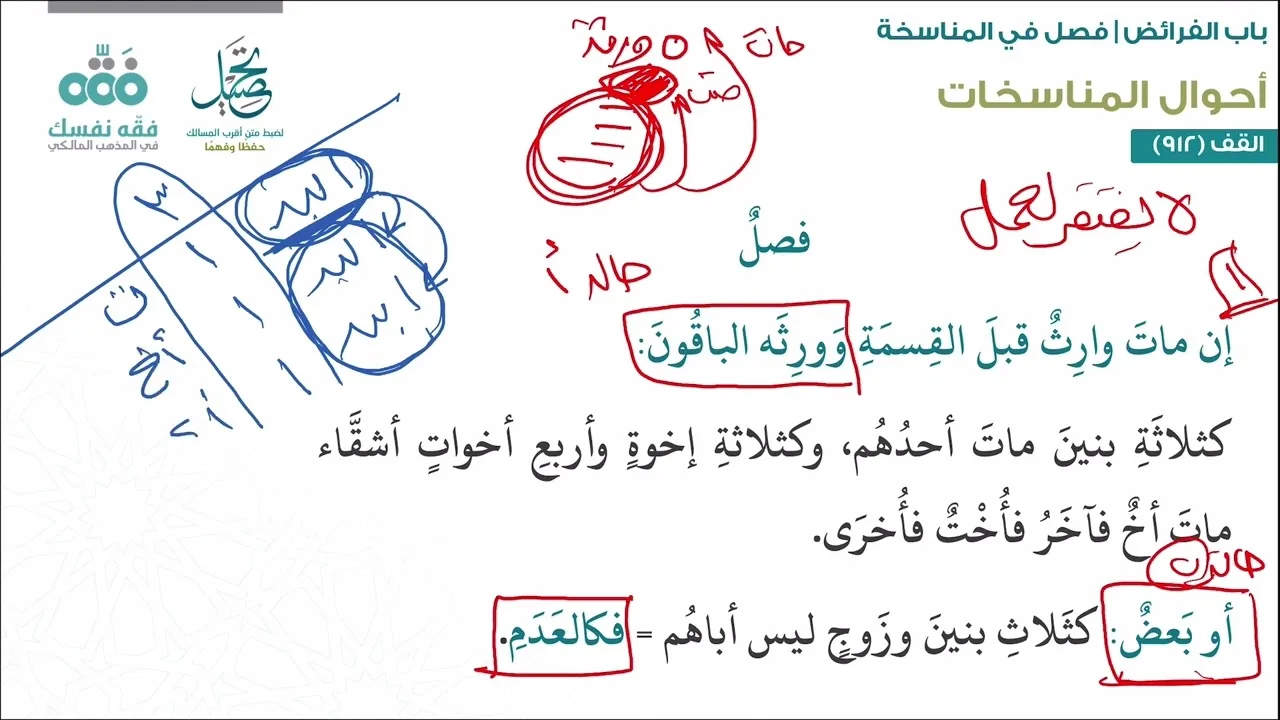 باب الفرائض | فصل في المناسخة
أحوال المناسخات
القف (٩١٢)
تحصيل
لضبط متن أقرب المسالك
حفظا وفهمًا
فقه نفسك
في المذهب المالكي
مات
ورثة
لا يفتقر لعمل
حالة أ
فصلٌ
إن ماتَ وارِثٌ قبلَ القِسمَةِ وَورِثَه الباقُونَ:
كثلاثَةِ بنينَ ماتَ أحدُهُم، وكثلاثةِ إخوةٍ وأربعِ أخواتٍ أشقَّاء
ماتَ أخٌ فآخَرُ فأُخْتٌ فأُخرَى.
أو بَعضٌ: كثَلاثِ بنينَ وزَوجٍ ليس أباهُم = فكالعَدَمِ.
ابن
ابن
ابن
٣
١
١
١
ت
أخ